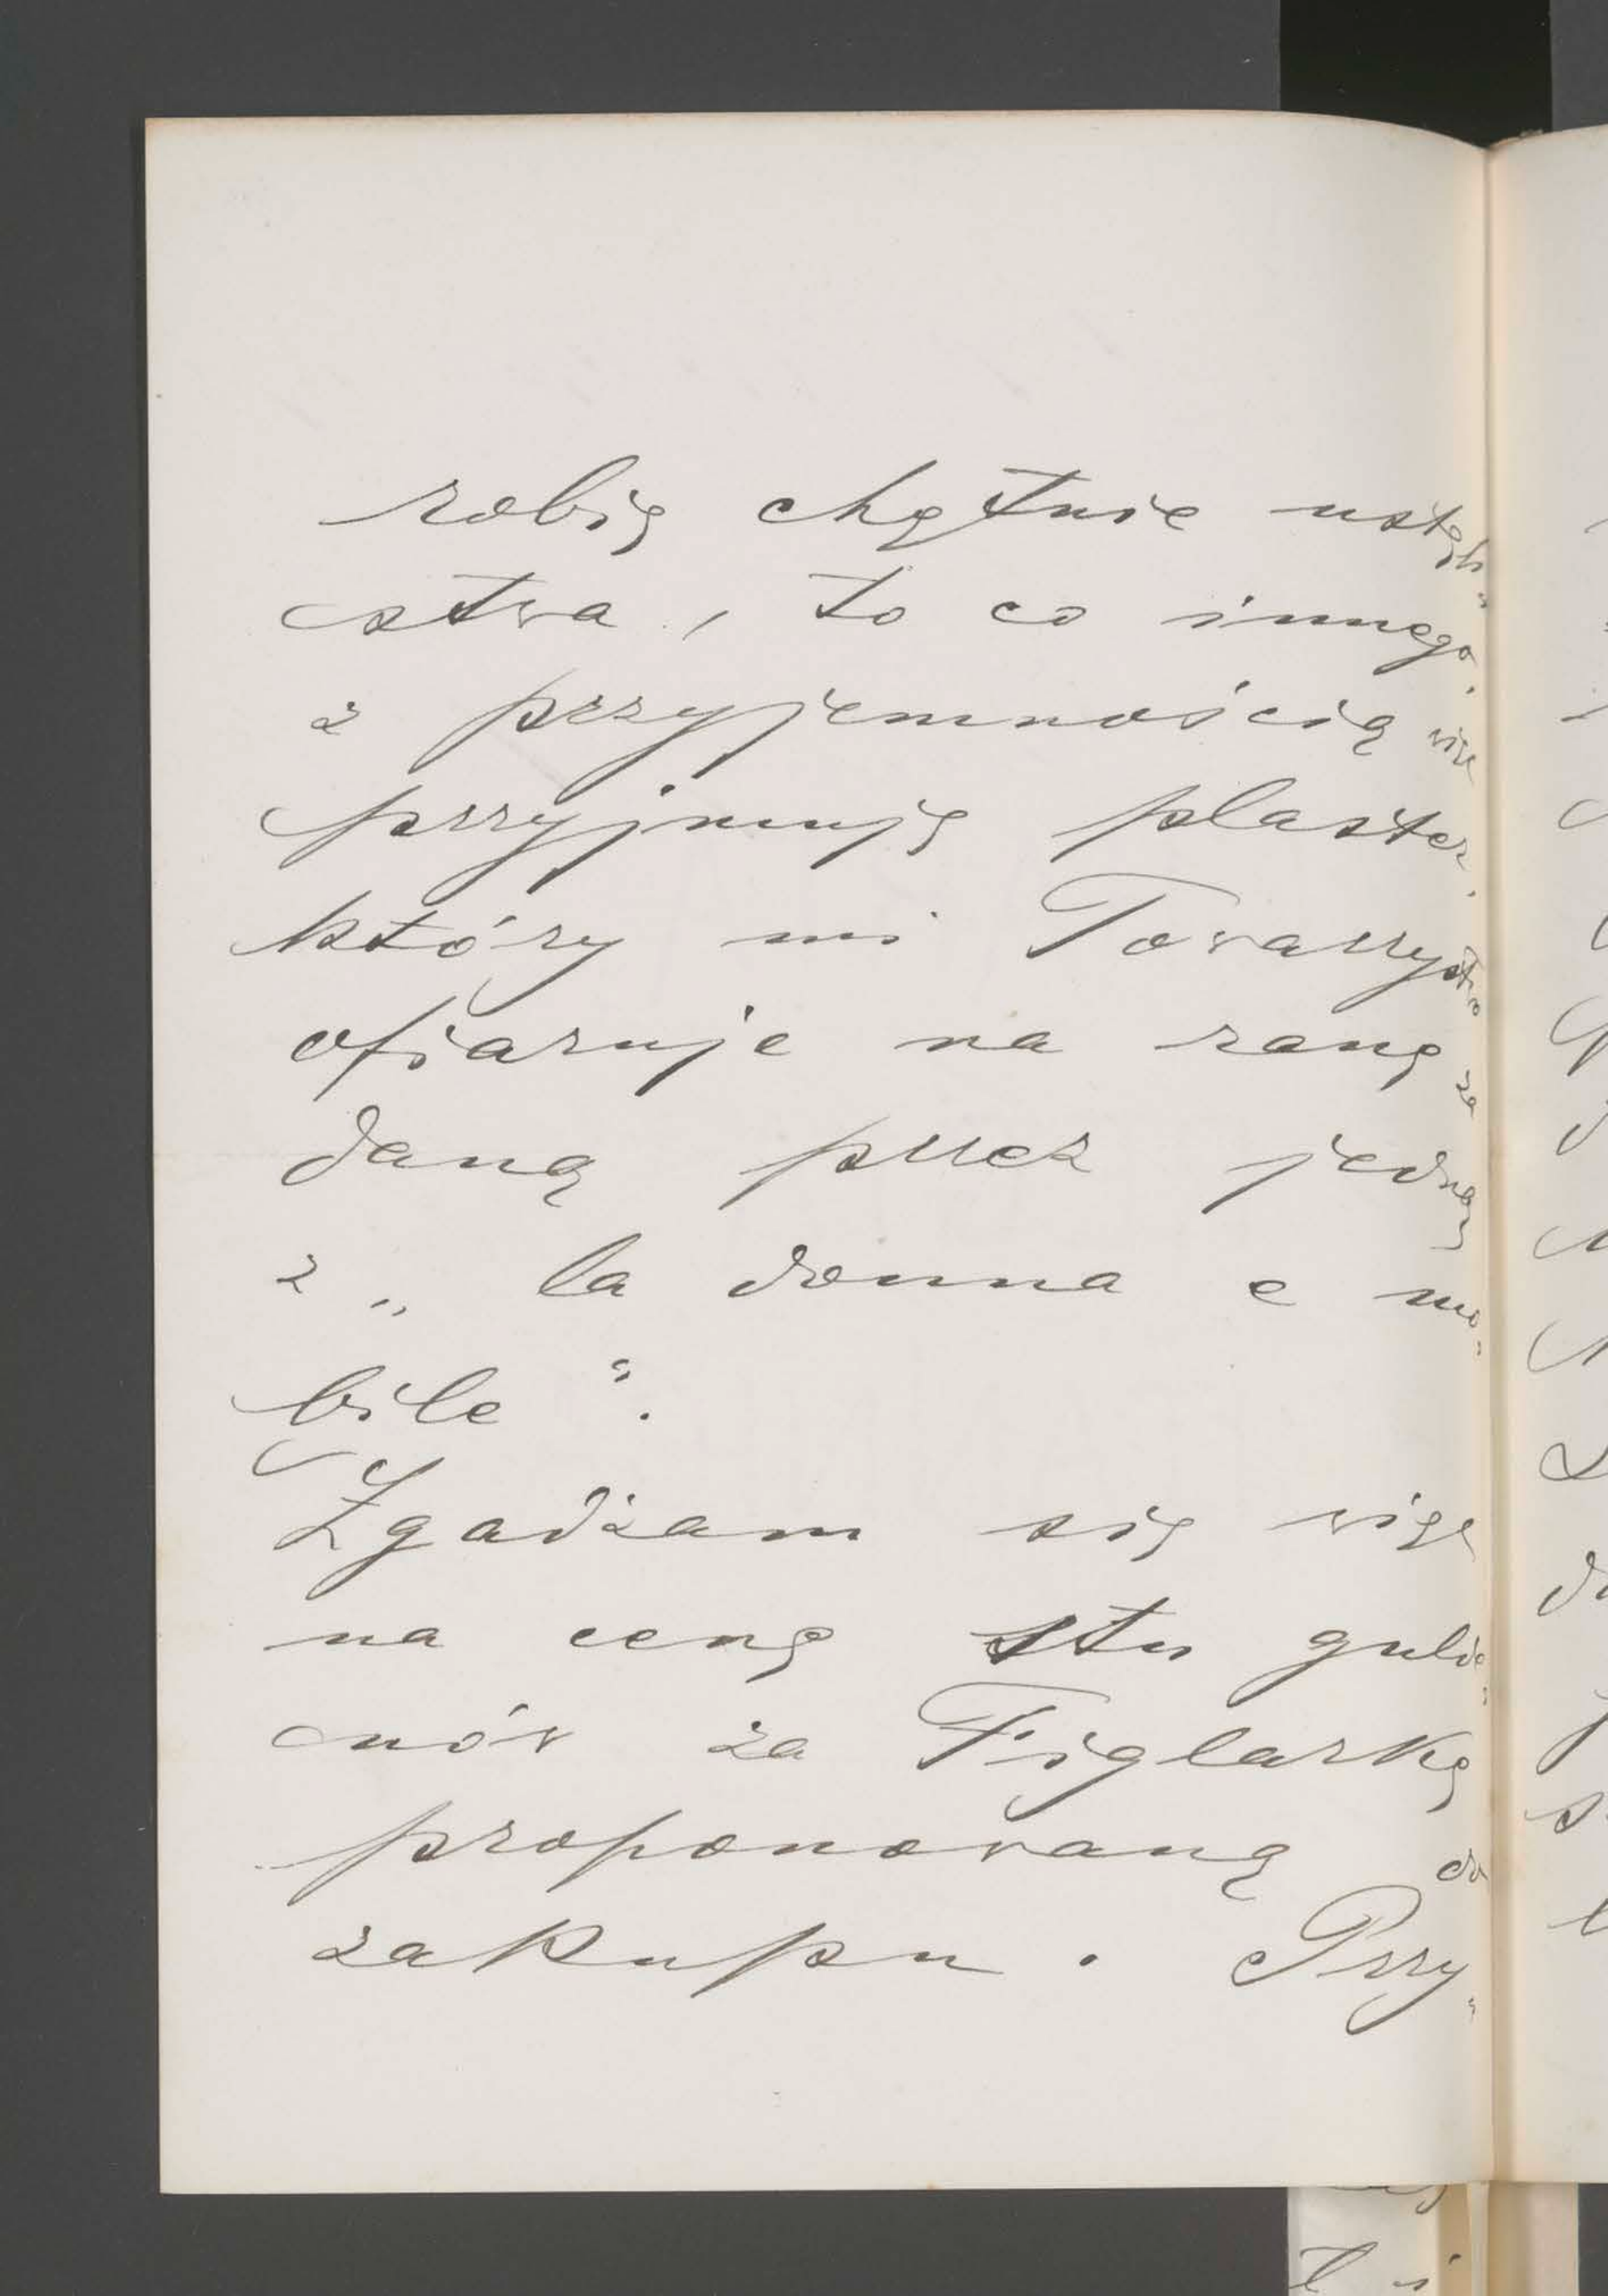 robię chętnie ustęp„
stwa, to co innego,
z przyjemnością więc
przyjmuję plaster,
który mi Towarzystwo
ofiaruje na ranę za
daną przez jedną
z „la donna e mo„
bile".
Zgadzam się więc
na cenę stu guldę„
nów za Figlarkę
proponowaną do
zakupu. Przy„